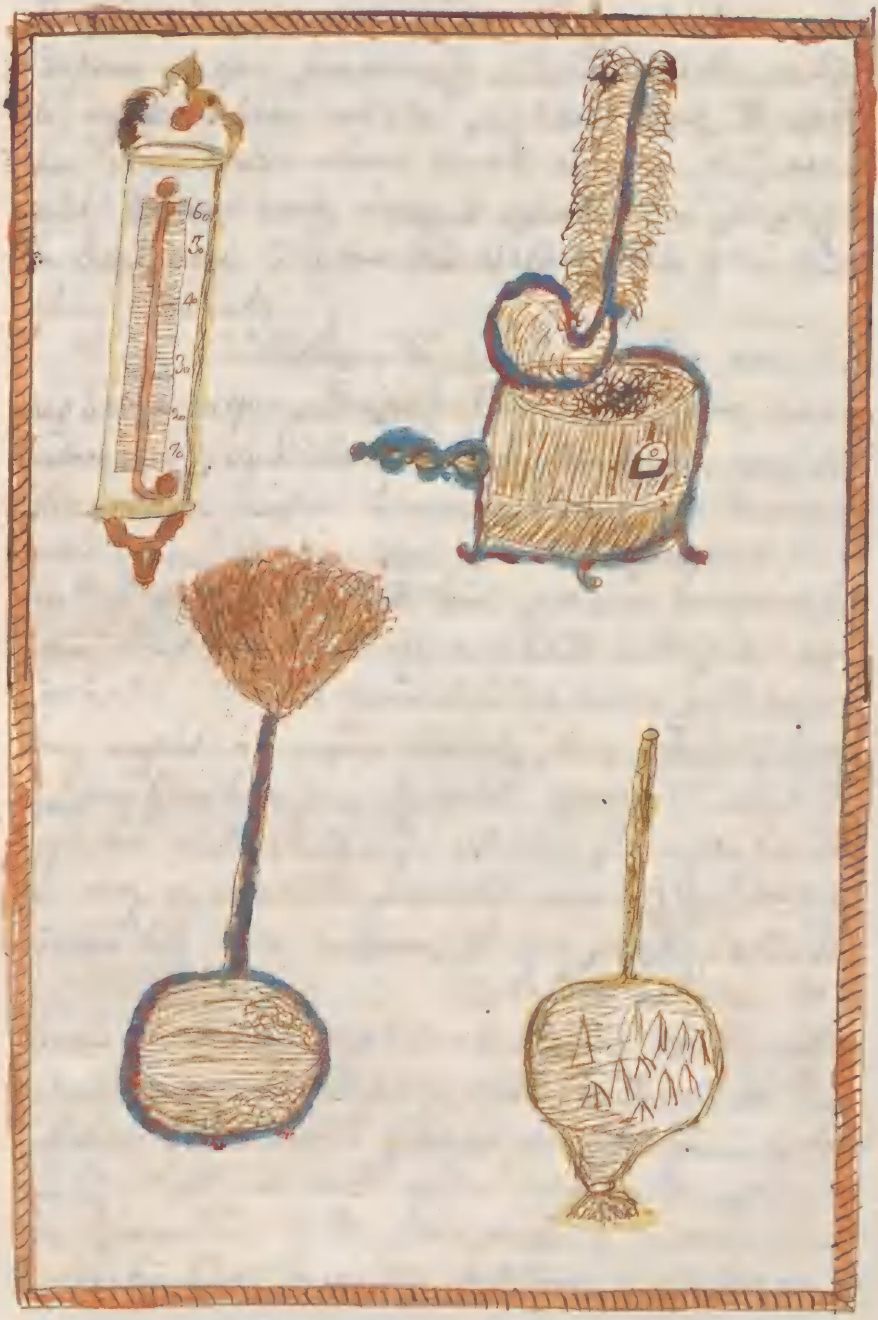 60
50
40
30
20
10